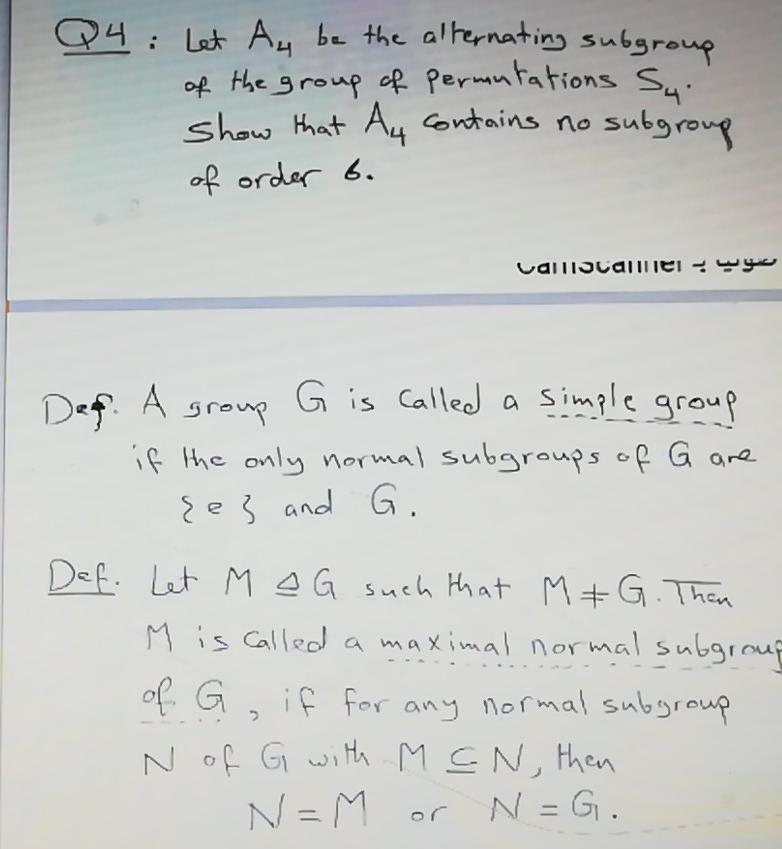 Q4 : Let A₄ be the alternating subgroup
of the group of permutations S₄.
Show that A₄ contains no subgroup
of order 6.
CamScanner بـ
Def. A group G is called a simple group
if the only normal subgroups of G are
{e} and G.
Def. Let M ⊴ G such that M ≠ G. Then
M is called a maximal normal subgroup
of G, if for any normal subgroup
N of G with M ⊆ N, then
N = M or N = G.